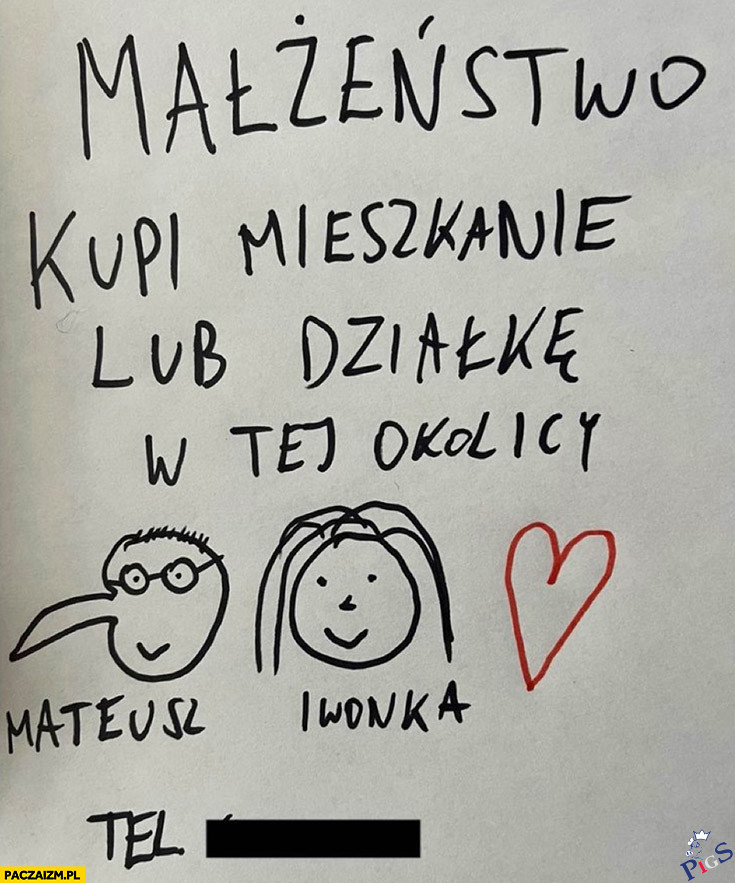 MAŁŻEŃSTWO
KUPI MIESZKANIE
LUB DZIAŁKĘ
W TEJ OKOLICY
MATEUSZ IWONKA
TEL
PACZAIZM.PL
PIGS